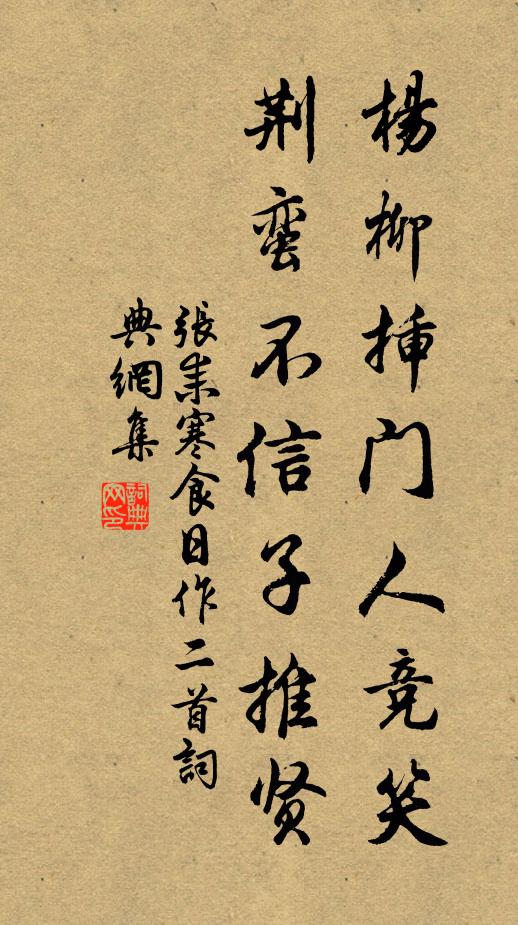 楊柳插门人竞笑
荆蛮不信子推贤
張耒寒食日作二首詞
典網集
詞典网印